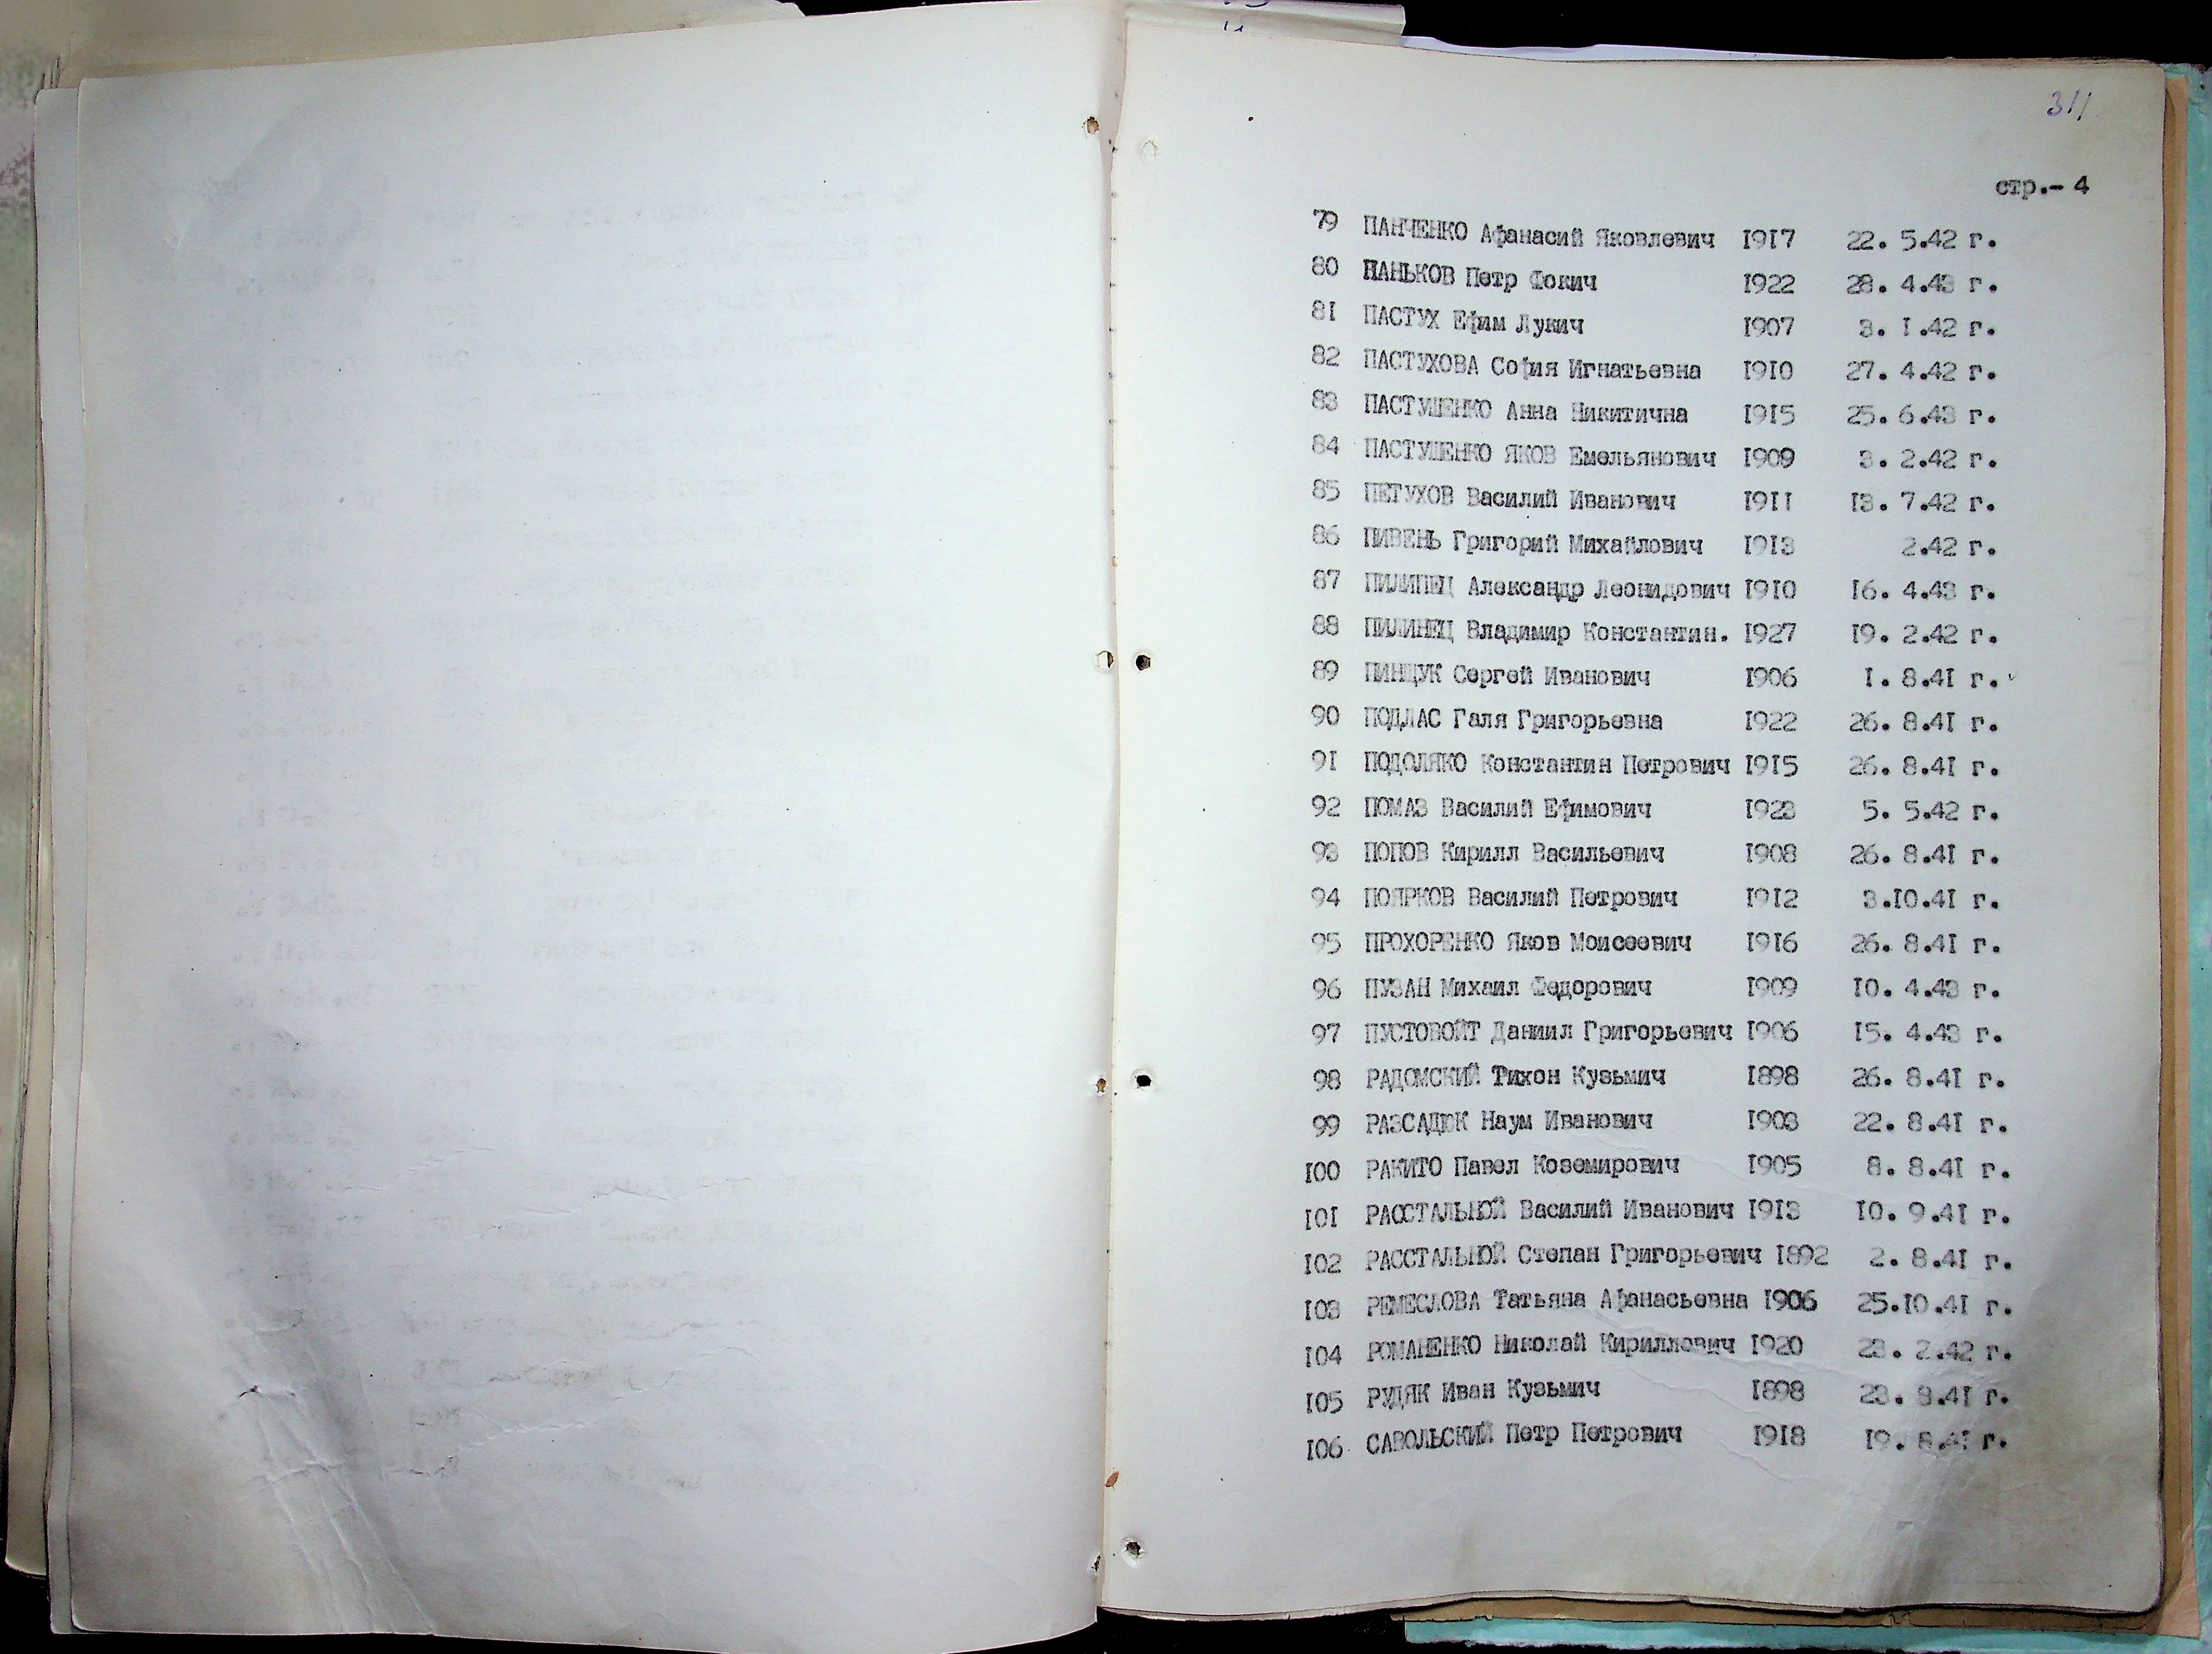 311
стр.- 4
79 ПАНЧЕНКО Афанасий Яковлевич 1917 22. 5.42 г.
80 ПАНЬКОВ Петр Фокич 1922 28. 4.43 г.
81 ПАСТУХ Ефим Лукич 1907 3. 1.42 г.
82 ПАСТУХОВА София Игнатьевна 1910 27. 4.42 г.
83 ПАСТУШЕНКО Анна Никитична 1915 25. 6.43 г.
84 ПАСТУШЕНКО ЯКОВ Емельянович 1909 3. 2.42 г.
85 ПЕТУХОВ Василий Иванович 1911 13. 7.42 г.
86 ПИВЕНЬ Григорий Михайлович 1913 2.42 г.
87 ПИЛИПЕЦ Александр Леонидович 1910 16. 4.43 г.
88 ПИЛИПЕЦ Владимир Константин. 1927 19. 2.42 г.
89 ПИНЩУК Сергей Иванович 1906 1. 8.41 г.
90 ПОДЛАС Галя Григорьевна 1922 26. 8.41 г.
91 ПОДОЛЯКО Константин Петрович 1915 26. 8.41 г.
92 ПОМАЗ Василий Ефимович 1923 5. 5.42 г.
93 ПОПОВ Кирилл Васильевич 1908 26. 8.41 г.
94 ПОЯРКОВ Василий Петрович 1912 3.10.41 г.
95 ПРОХОРЕНКО Яков Моисеевич 1916 26. 8.41 г.
96 ПУЗАН Михаил Федорович 1909 10. 4.43 г.
97 ПУСТОВОЙТ Даниил Григорьевич 1906 15. 4.43 г.
98 РАДОМСКИЙ Тихон Кузьмич 1898 26. 8.41 г.
99 РАЗСАДЮК Наум Иванович 1903 22. 8.41 г.
100 РАКИТО Павел Коземирович 1905 8. 8.41 г.
101 РАССТАЛЬНОЙ Василий Иванович 1913 10. 9.41 г.
102 РАССТАЛЬНОЙ Степан Григорьевич 1892 2. 8.41 г.
103 РЕМЕСЛОВА Татьяна Афанасьевна 1906 25.10.41 г.
104 РОМАНЕНКО Николай Кириллович 1920 23. 2.42 г.
105 РУДЯК Иван Кузьмич 1898 23. 8.41 г.
106 САВОЛЬСКИЙ Петр Петрович 1918 19. 8.41 г.